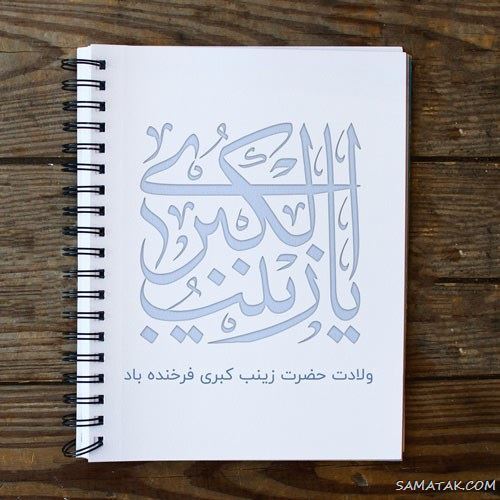 یا زینب الکبری
ولادت حضرت زینب کبری فرخنده باد
SAMATAK.COM